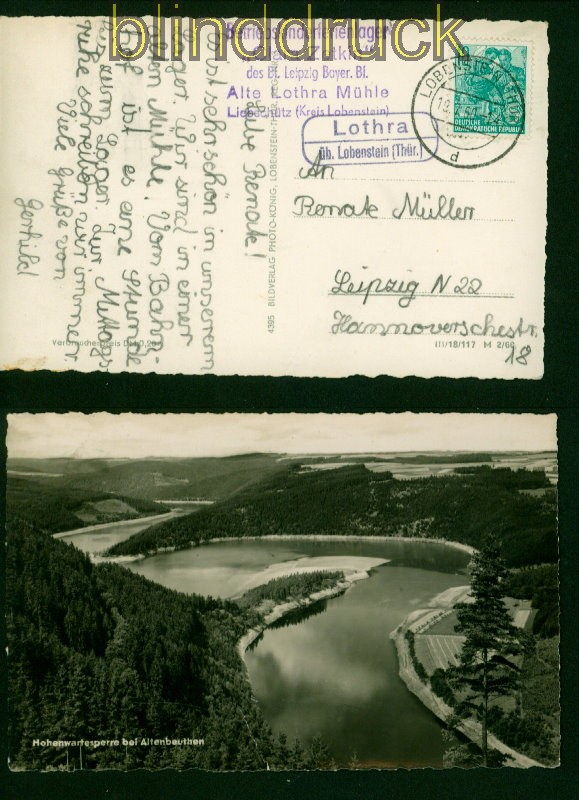 blinddruck
Betriebsferienlager
des Bf. Leipzig Bayer. Bf.
Alte Lothra Mühle
Liebschütz (Kreis Lobenstein)
Lothra
üb. Lobenstein (Thür.)
LOBENSTEIN
d
DEUTSCHE
DEMOKRATISCHE REPUBLIK
An
Renate Müller
Leipzig N 22
Hannoverschestr.
18
III/18/117 M 2/60
4395 BILDVERLAG PHOTO-KÖNIG, LOBENSTEIN-THÜR.
Liebe Renate!
ist sehr schön in unserem
Lager. Wir sind in einer
alten Mühle. Vom Bahn-
hof ist es eine Stunde
bis zum Lager. Zur Mittags-
ruhe schreiben wir immer
Viele Grüße von
Gerhild
Verbraucherpreis DM 0,20
Hohenwartesperre bei Altenbeuthen